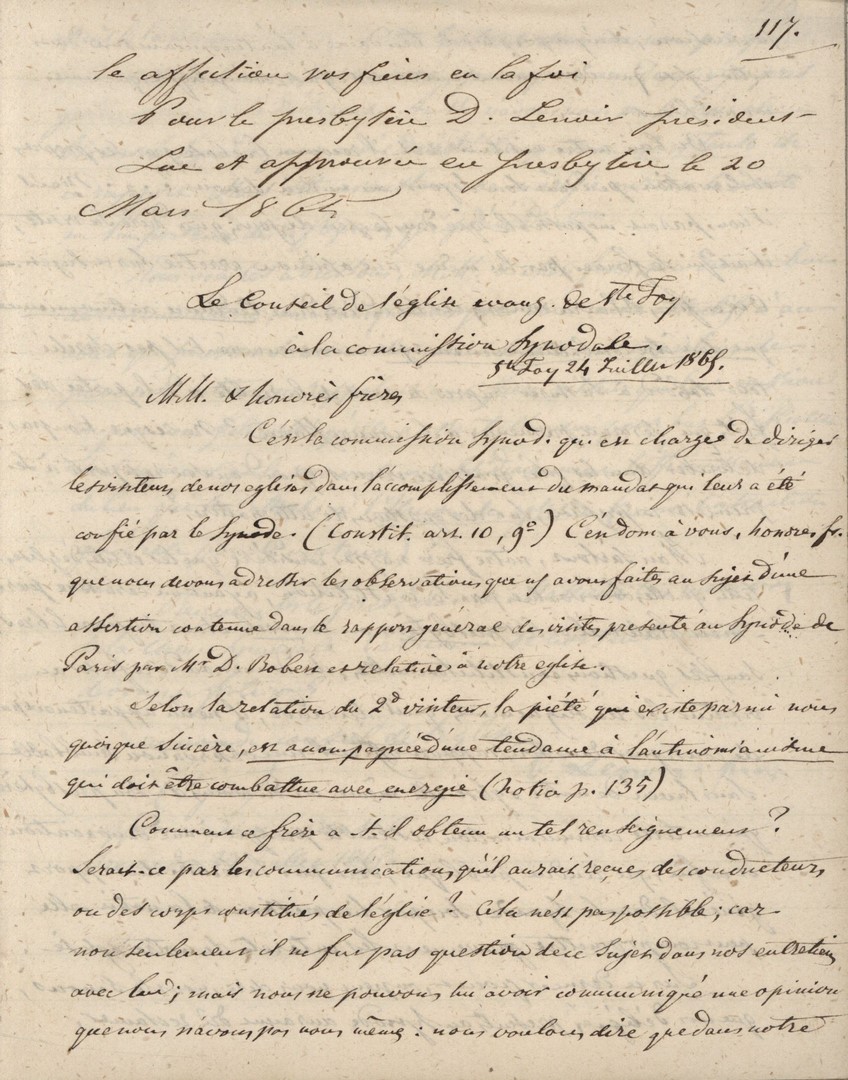 117.
le affection vos frères en la foi
Pour le presbytère D. Lenoir président
Lue et approuvée en presbytère le 20
Mars 1865
Le Conseil de l'église evang. de Ste Foy
à la commission synodale.
Ste Foy 24 Juillet 1865.
M.M. & honorés frères
C'est la commission synod. qui est chargée de diriger
les visiteurs de nos eglises dans l'accomplissement du mandat qui leur a été
confié par le Synode. (Constit. art. 10, 9º) C'est dom à vous, honorés fr.
que nous devons adresser les observations que ns avons faites au sujet d'une
assertion contenue dans le rapport général des visites, presenté au Synode de
Paris par Mr D. Robert et relative à notre eglise.
Selon la relation du 2d visiteur, la piété qui existe parmi nous
quoique sincère, est accompagnée d'une tendance à l'antinomianisme
qui doit être combattue avec energie (p. 135)
Comment ce frère a-t-il obtenu un tel renseignement ?
Serait-ce par les communications qu'il aurait reçues des conducteurs
ou des corps constitués de l'église ? Cela n'est pas possible ; car
non seulement il ne fut pas question de ce sujet dans nos entretiens
avec lui ; mais nous ne pouvons lui avoir communiqué une opinion
que nous n'avons pas nous même : nous voulons dire que dans notre